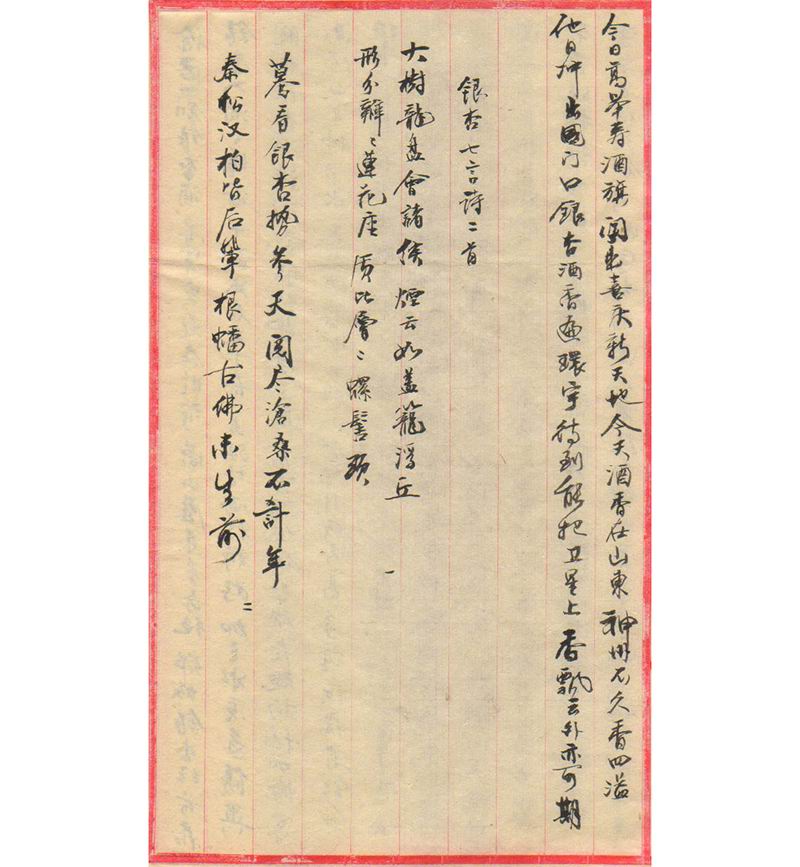 今日高举寿酒旗 闻东喜庆新天地 今天酒香在山东 神州不久香四溢
他日冲出国门口 银杏酒香通环宇 待到能把卫星上 香飘云外亦可期
银杏七言诗二首
大樹龍盘會諸侯 煙云如盖籠浮丘
形分瓣〻蓮花座 质比層〻螺髻頭 一
蓦看银杏势参天 阅尽滄桑不計年
秦松汉柏皆后辈 根蟠古佛未生前 二